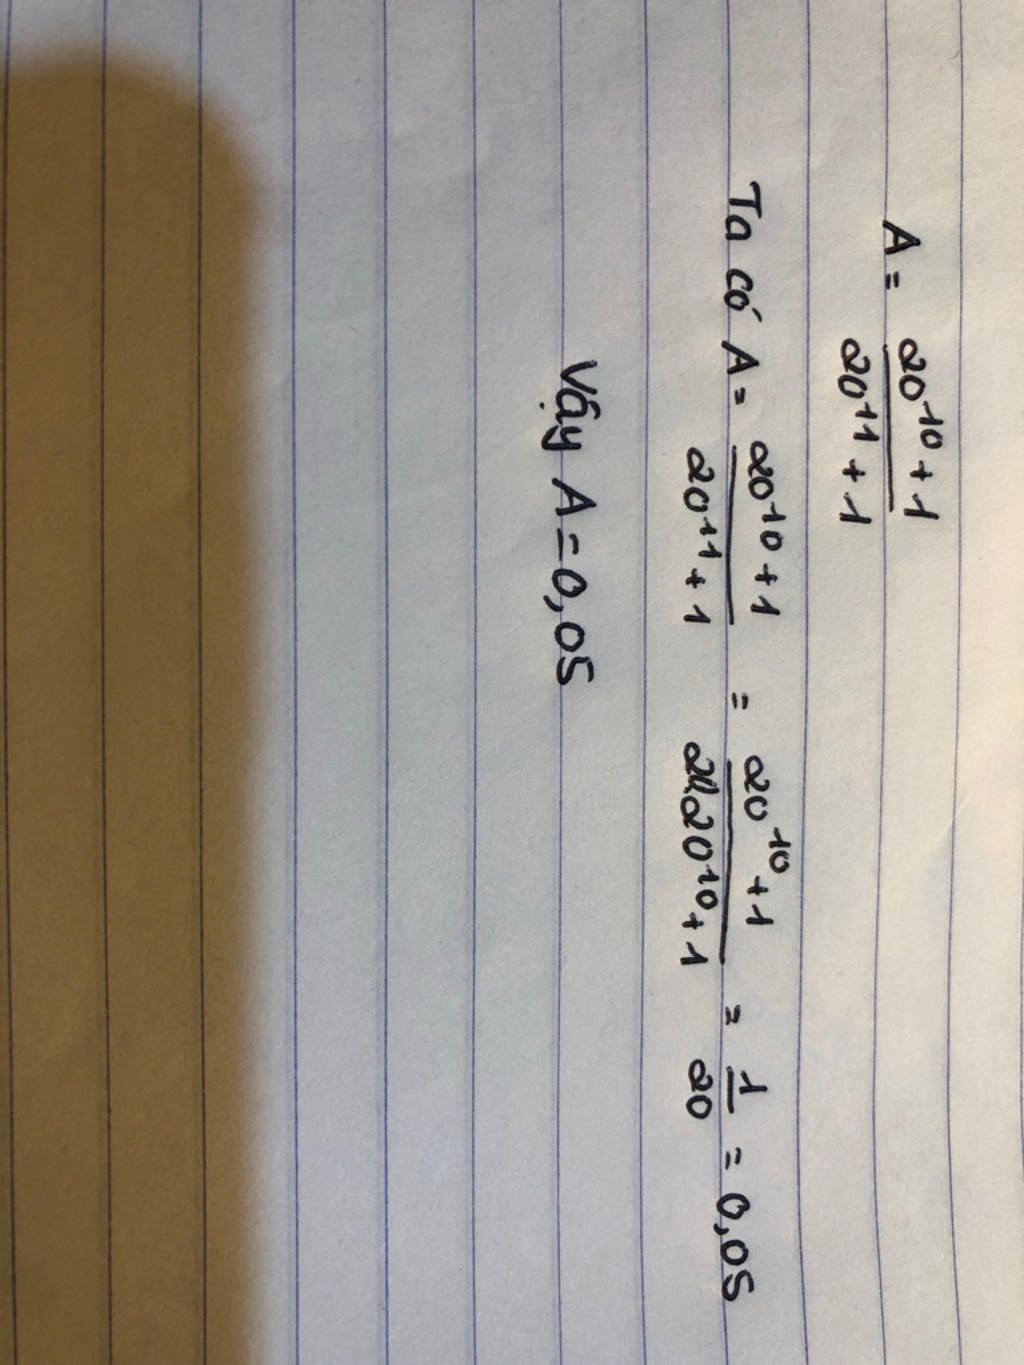 A = \frac{20^{10}+1}{20^{11}+1}
Ta có A = \frac{20^{10}+1}{20^{11}+1} = \frac{20^{10}+1}{20^{10}+1} = \frac{1}{20} = 0,05
Vậy A = 0,05